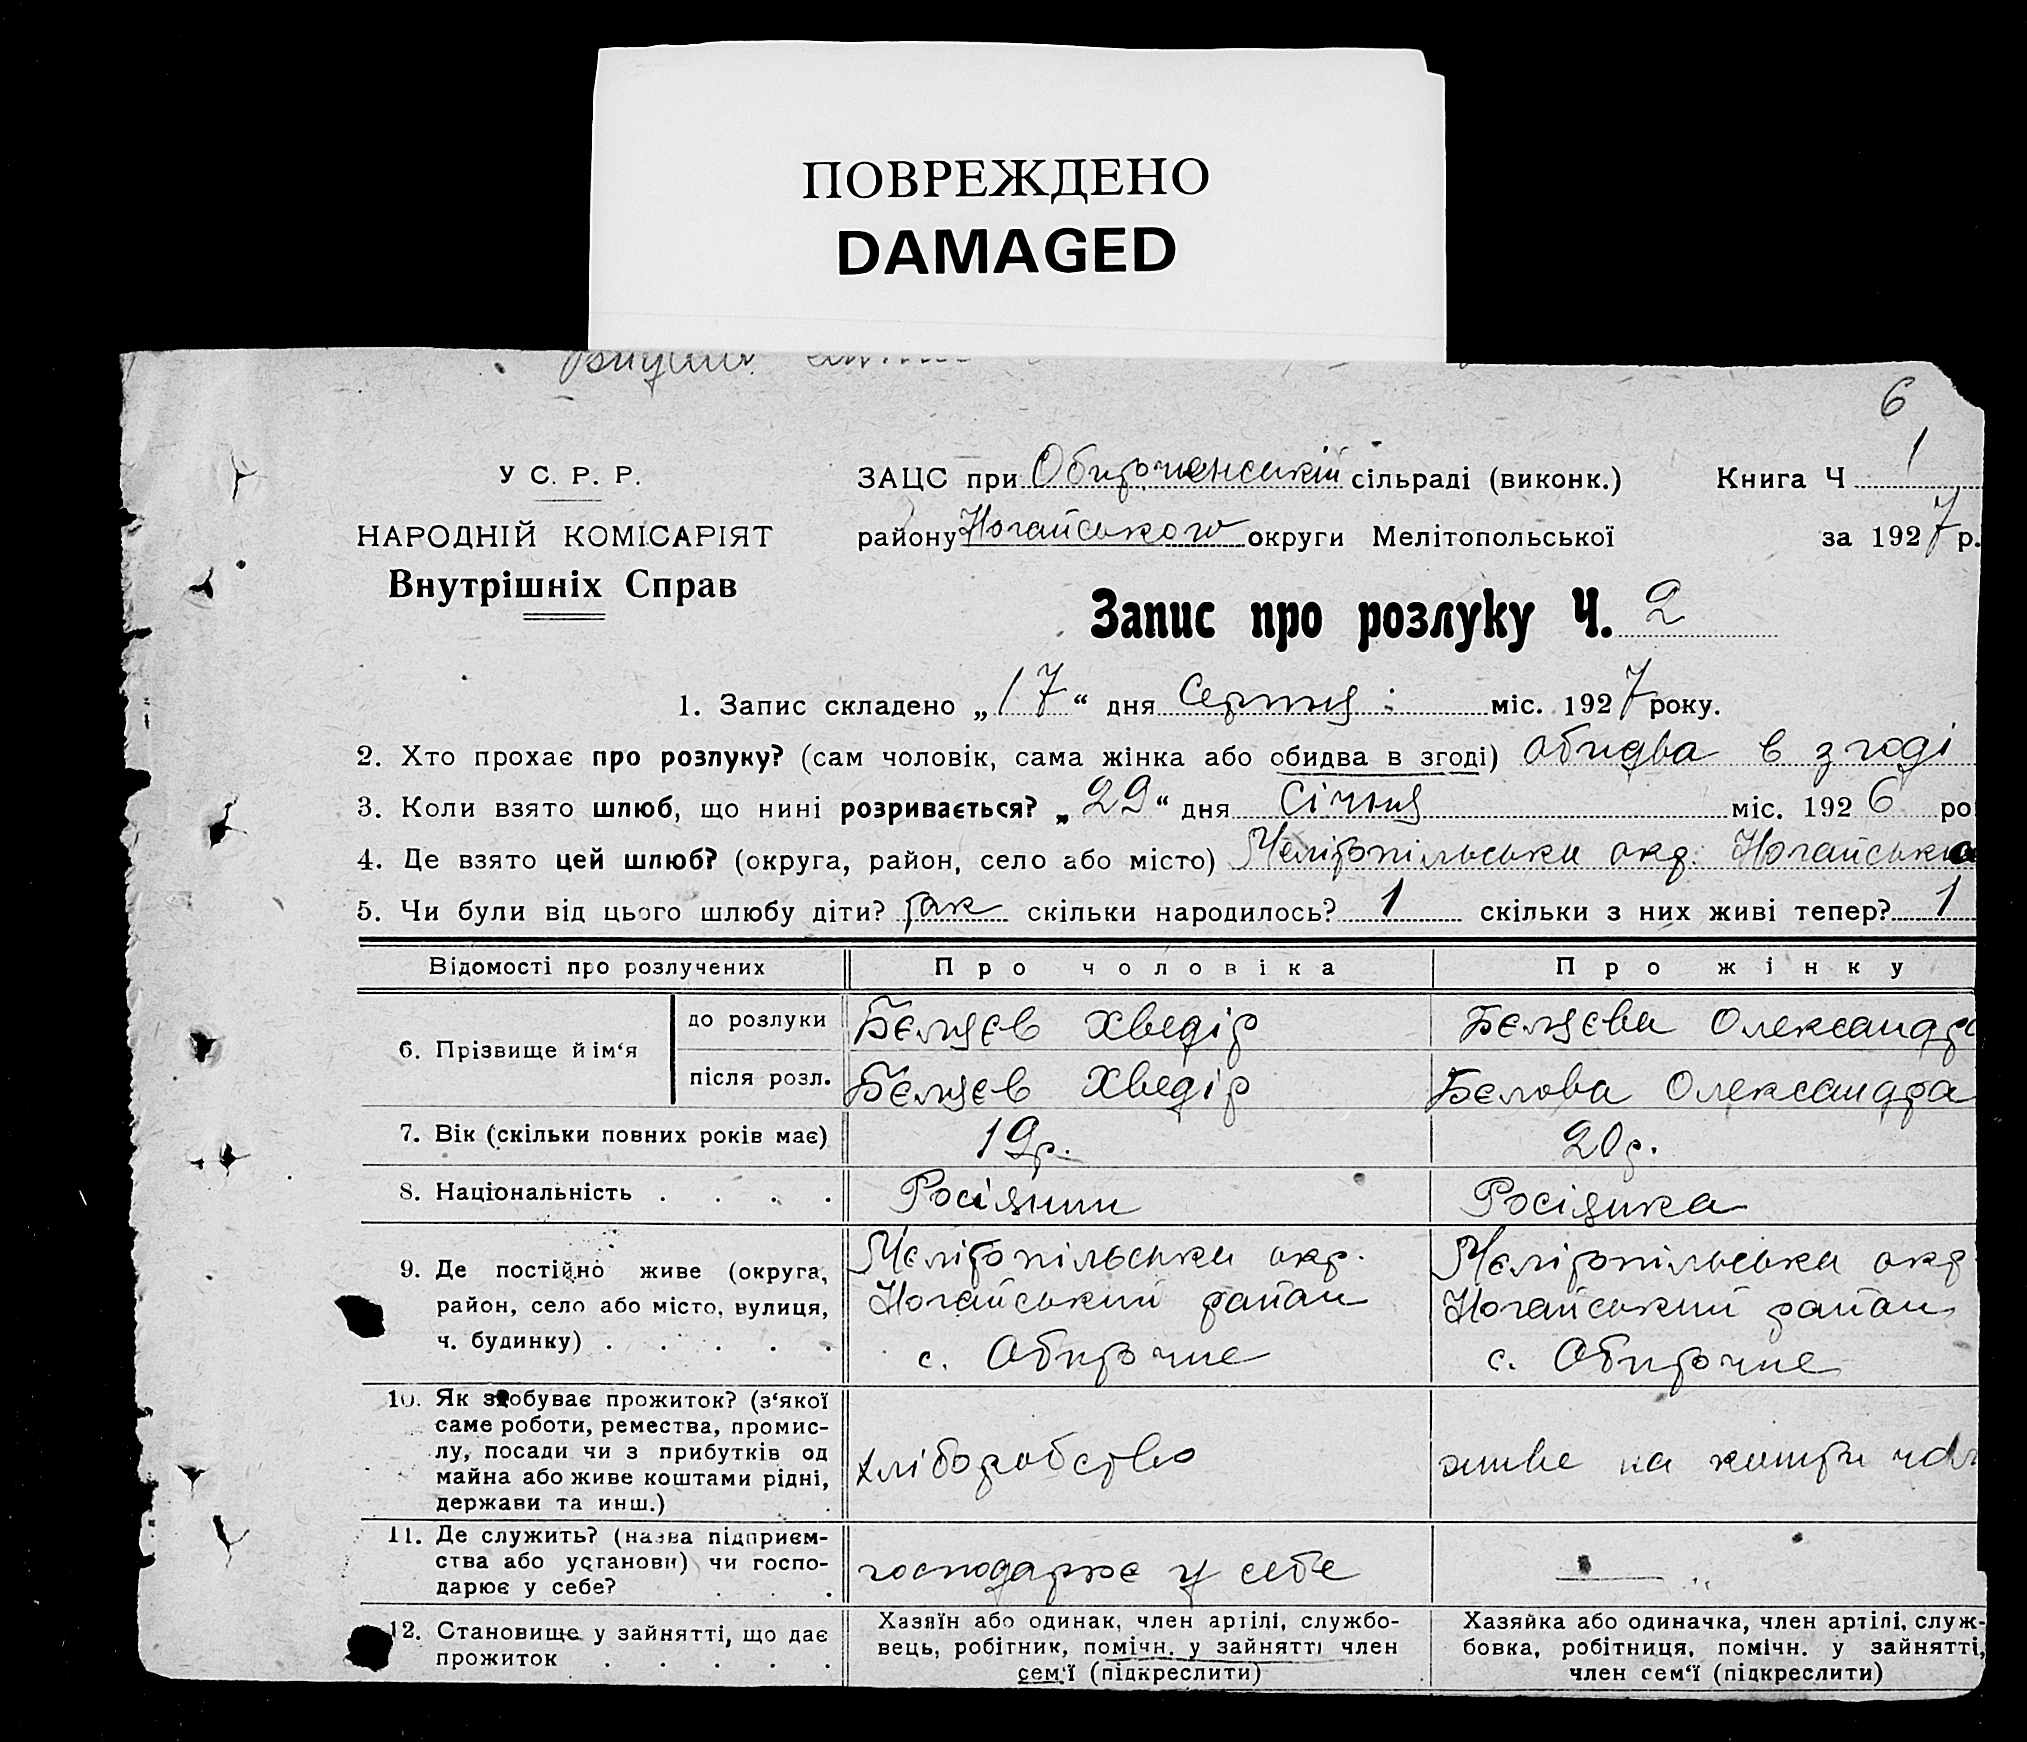 ПОВРЕЖДЕНО
DAMAGED
6
У С. Р. Р.
НАРОДНІЙ КОМІСАРІЯТ
Внутрішніх Справ
ЗАЦС при Обиточенській сільраді (виконк.) Книга Ч 1
району Ногайського округи Мелітопольської за 1927 р.
Запис про розлуку Ч. 2
1. Запис складено „17“ дня Серпня міс. 1927 року.
2. Хто прохає про розлуку? (сам чоловік, сама жінка або обидва в згоді) обидва в згоді
3. Коли взято шлюб, що нині розривається? „29“ дня Січня міс. 1926 ро
4. Де взято цей шлюб? (округа, район, село або місто) Мелітопільська окр. Ногайська
5. Чи були від цього шлюбу діти? так скільки народилось? 1 скільки з них живі тепер? 1
Відомості про розлучених Про чоловіка Про жінку
6. Прізвище й ім‘я
до розлуки Бєляєв Хведір Бєляєва Олександра
після розл. Бєляєв Хведір Бєлова Олександра
7. Вік (скільки повних років має) 19 р. 20 р.
8. Національність . . . . Росіянин Росіянка
9. Де постійно живе (округа, район, село або місто, вулиця, ч. будинку) . . . . .
Мелітопільська окр.
Ногайський район
с. Обиточне
Мелітопільська окр
Ногайський район
с. Обиточне
10. Як здобуває прожиток? (з‘якої
саме роботи, ремества, промис-
лу, посади чи з прибутків од
майна або живе коштами рідні,
держави та инш.)
хліборобство
живе на кошти чол
11. Де служить? (назва підприєм-
ства або установи) чи госпо-
дарює у себе?
господарює у себе
—
12. Становище у зайнятті, що дає
прожиток . . . . .
Хазяїн або одинак, член артілі, службо-
вець, робітник, помічн. у зайнятті член
сем‘ї (підкреслити)
Хазяйка або одиначка, член артілі, служ-
бовка, робітниця, помічн. у зайнятті,
член сем‘ї (підкреслити)